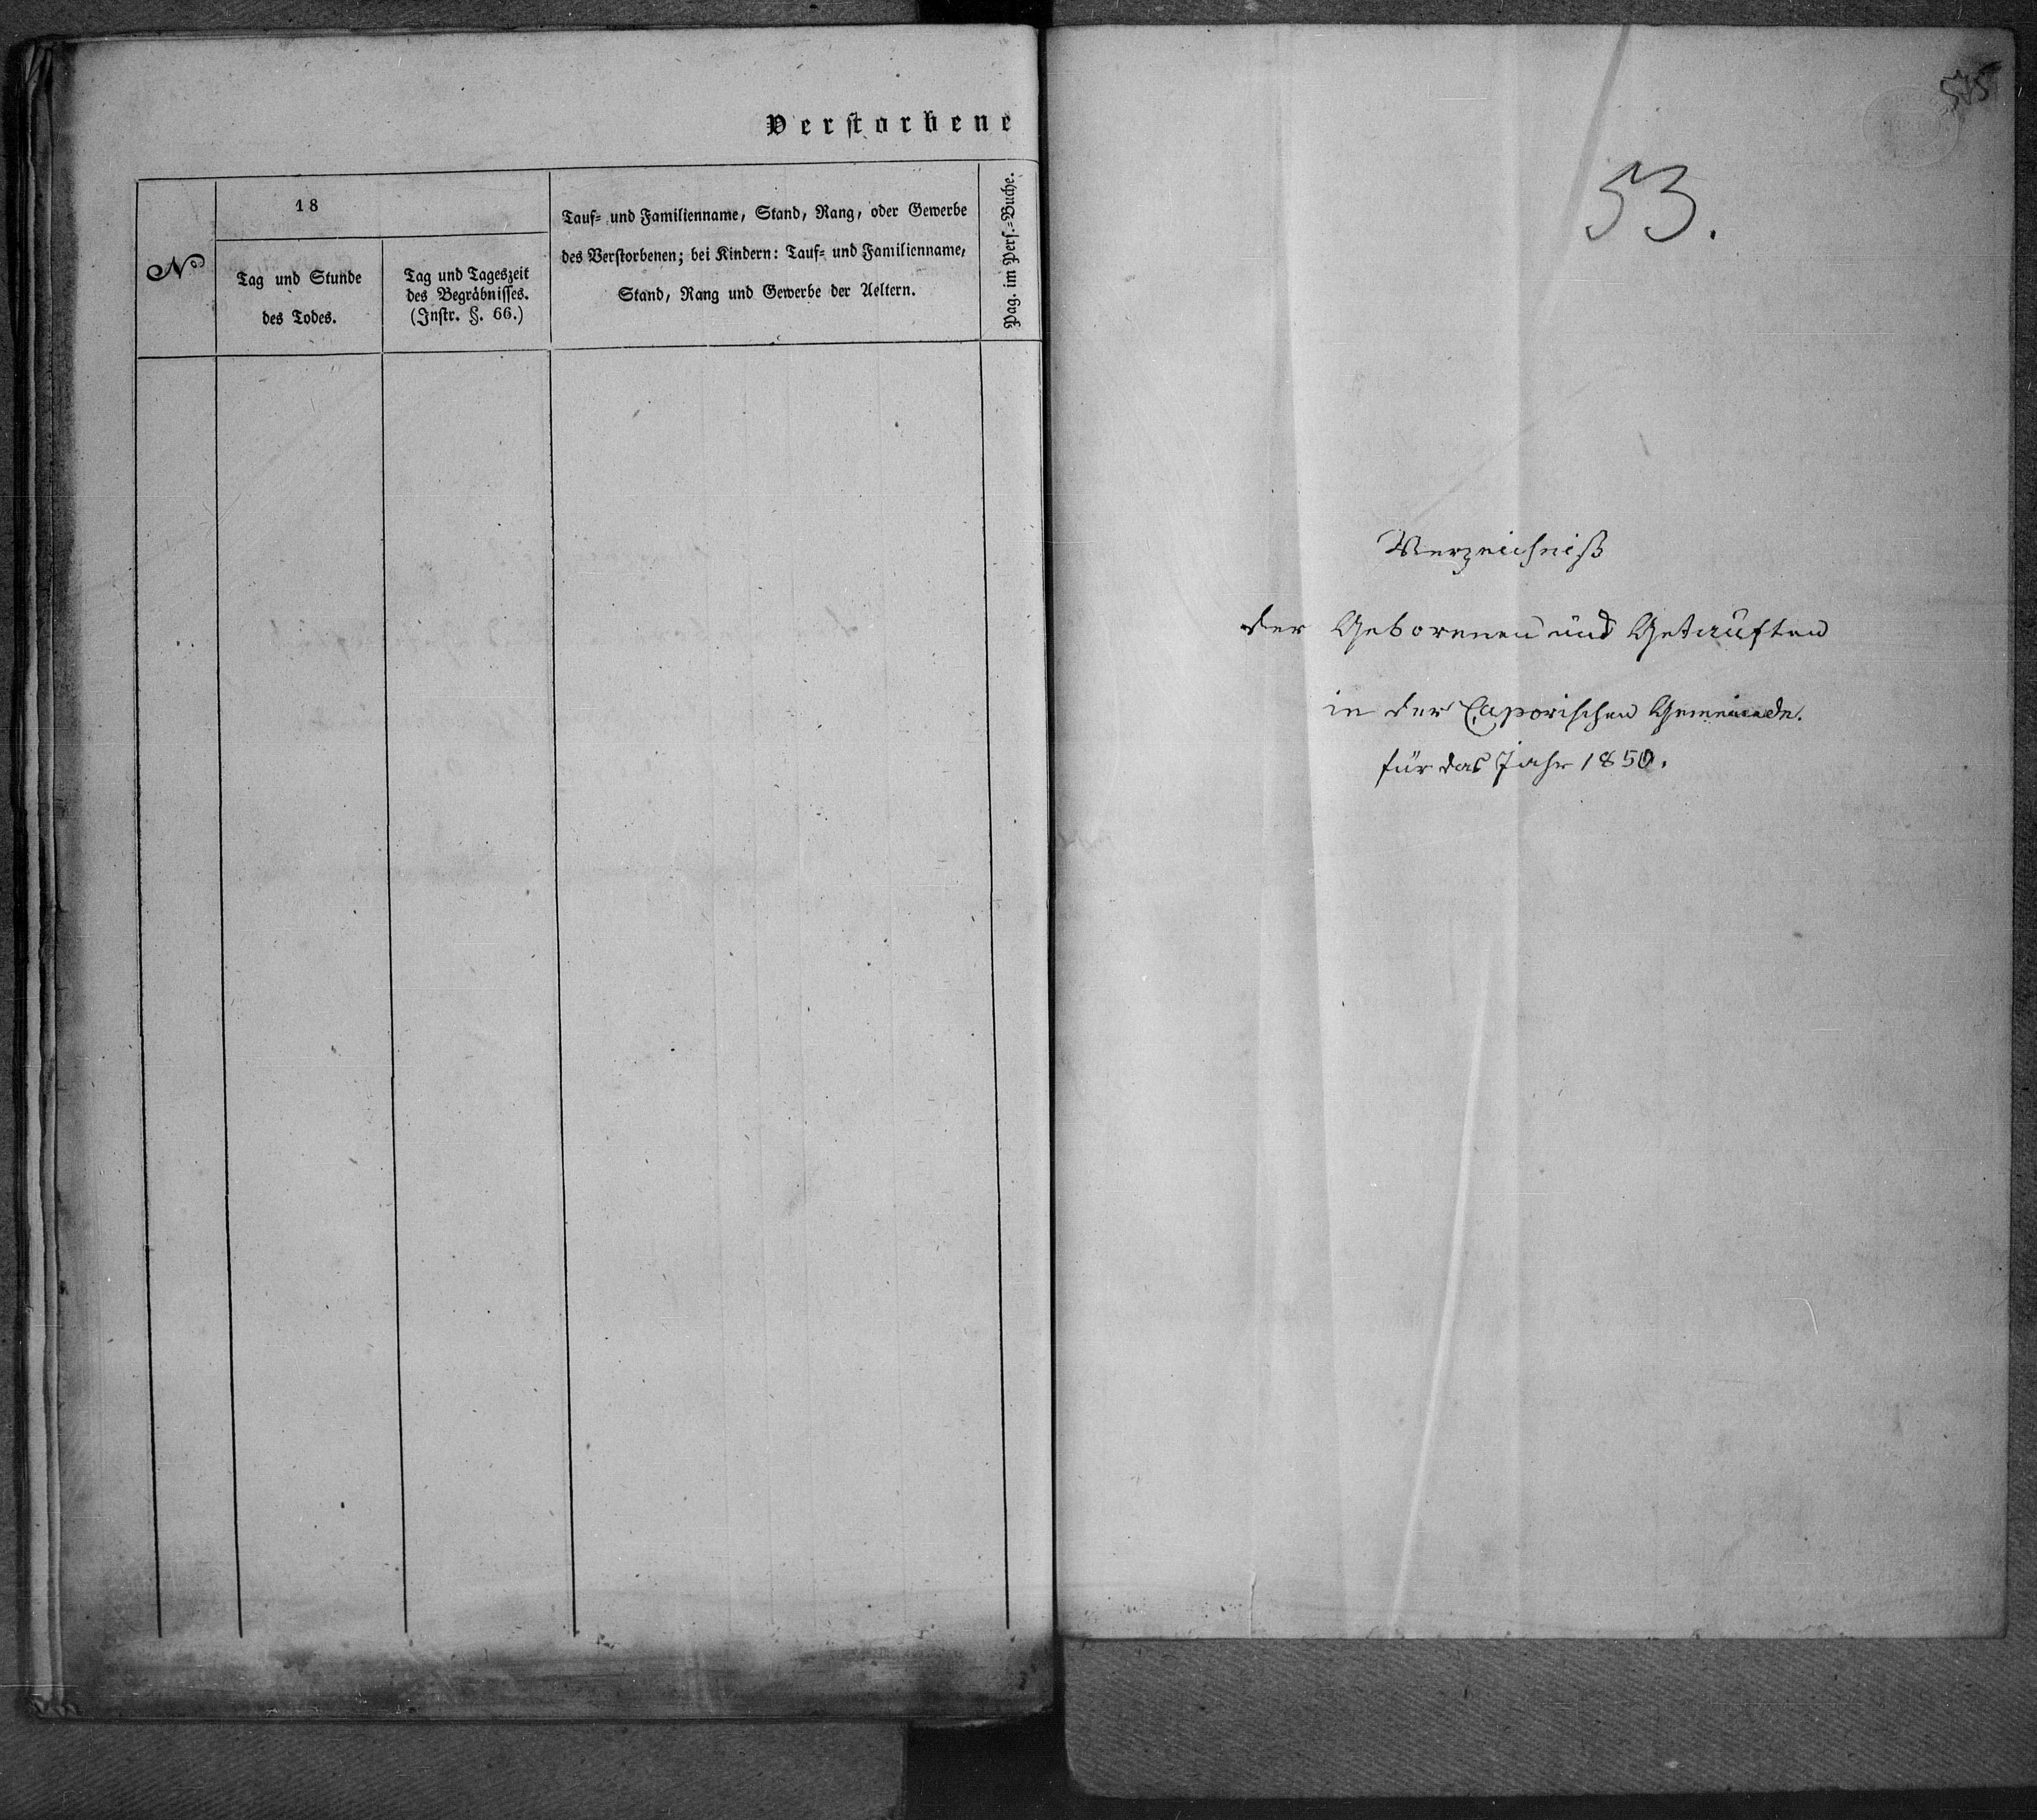 Verstorbene
No
18
Tag und Stunde
des Todes.
Tag und Tageszeit
des Begräbnisses.
(Instr. §. 66.)
Tauf= und Familienname, Stand, Rang, oder Gewerbe
des Verstorbenen; bei Kindern: Tauf= und Familienname,
Stand, Rang und Gewerbe der Aeltern.
Pag. im Pers.=Buche.
53.
Verzeichniß
der Geborenen und Getauften
in der Caporischen Gemeinde.
für das Jahr 1850.